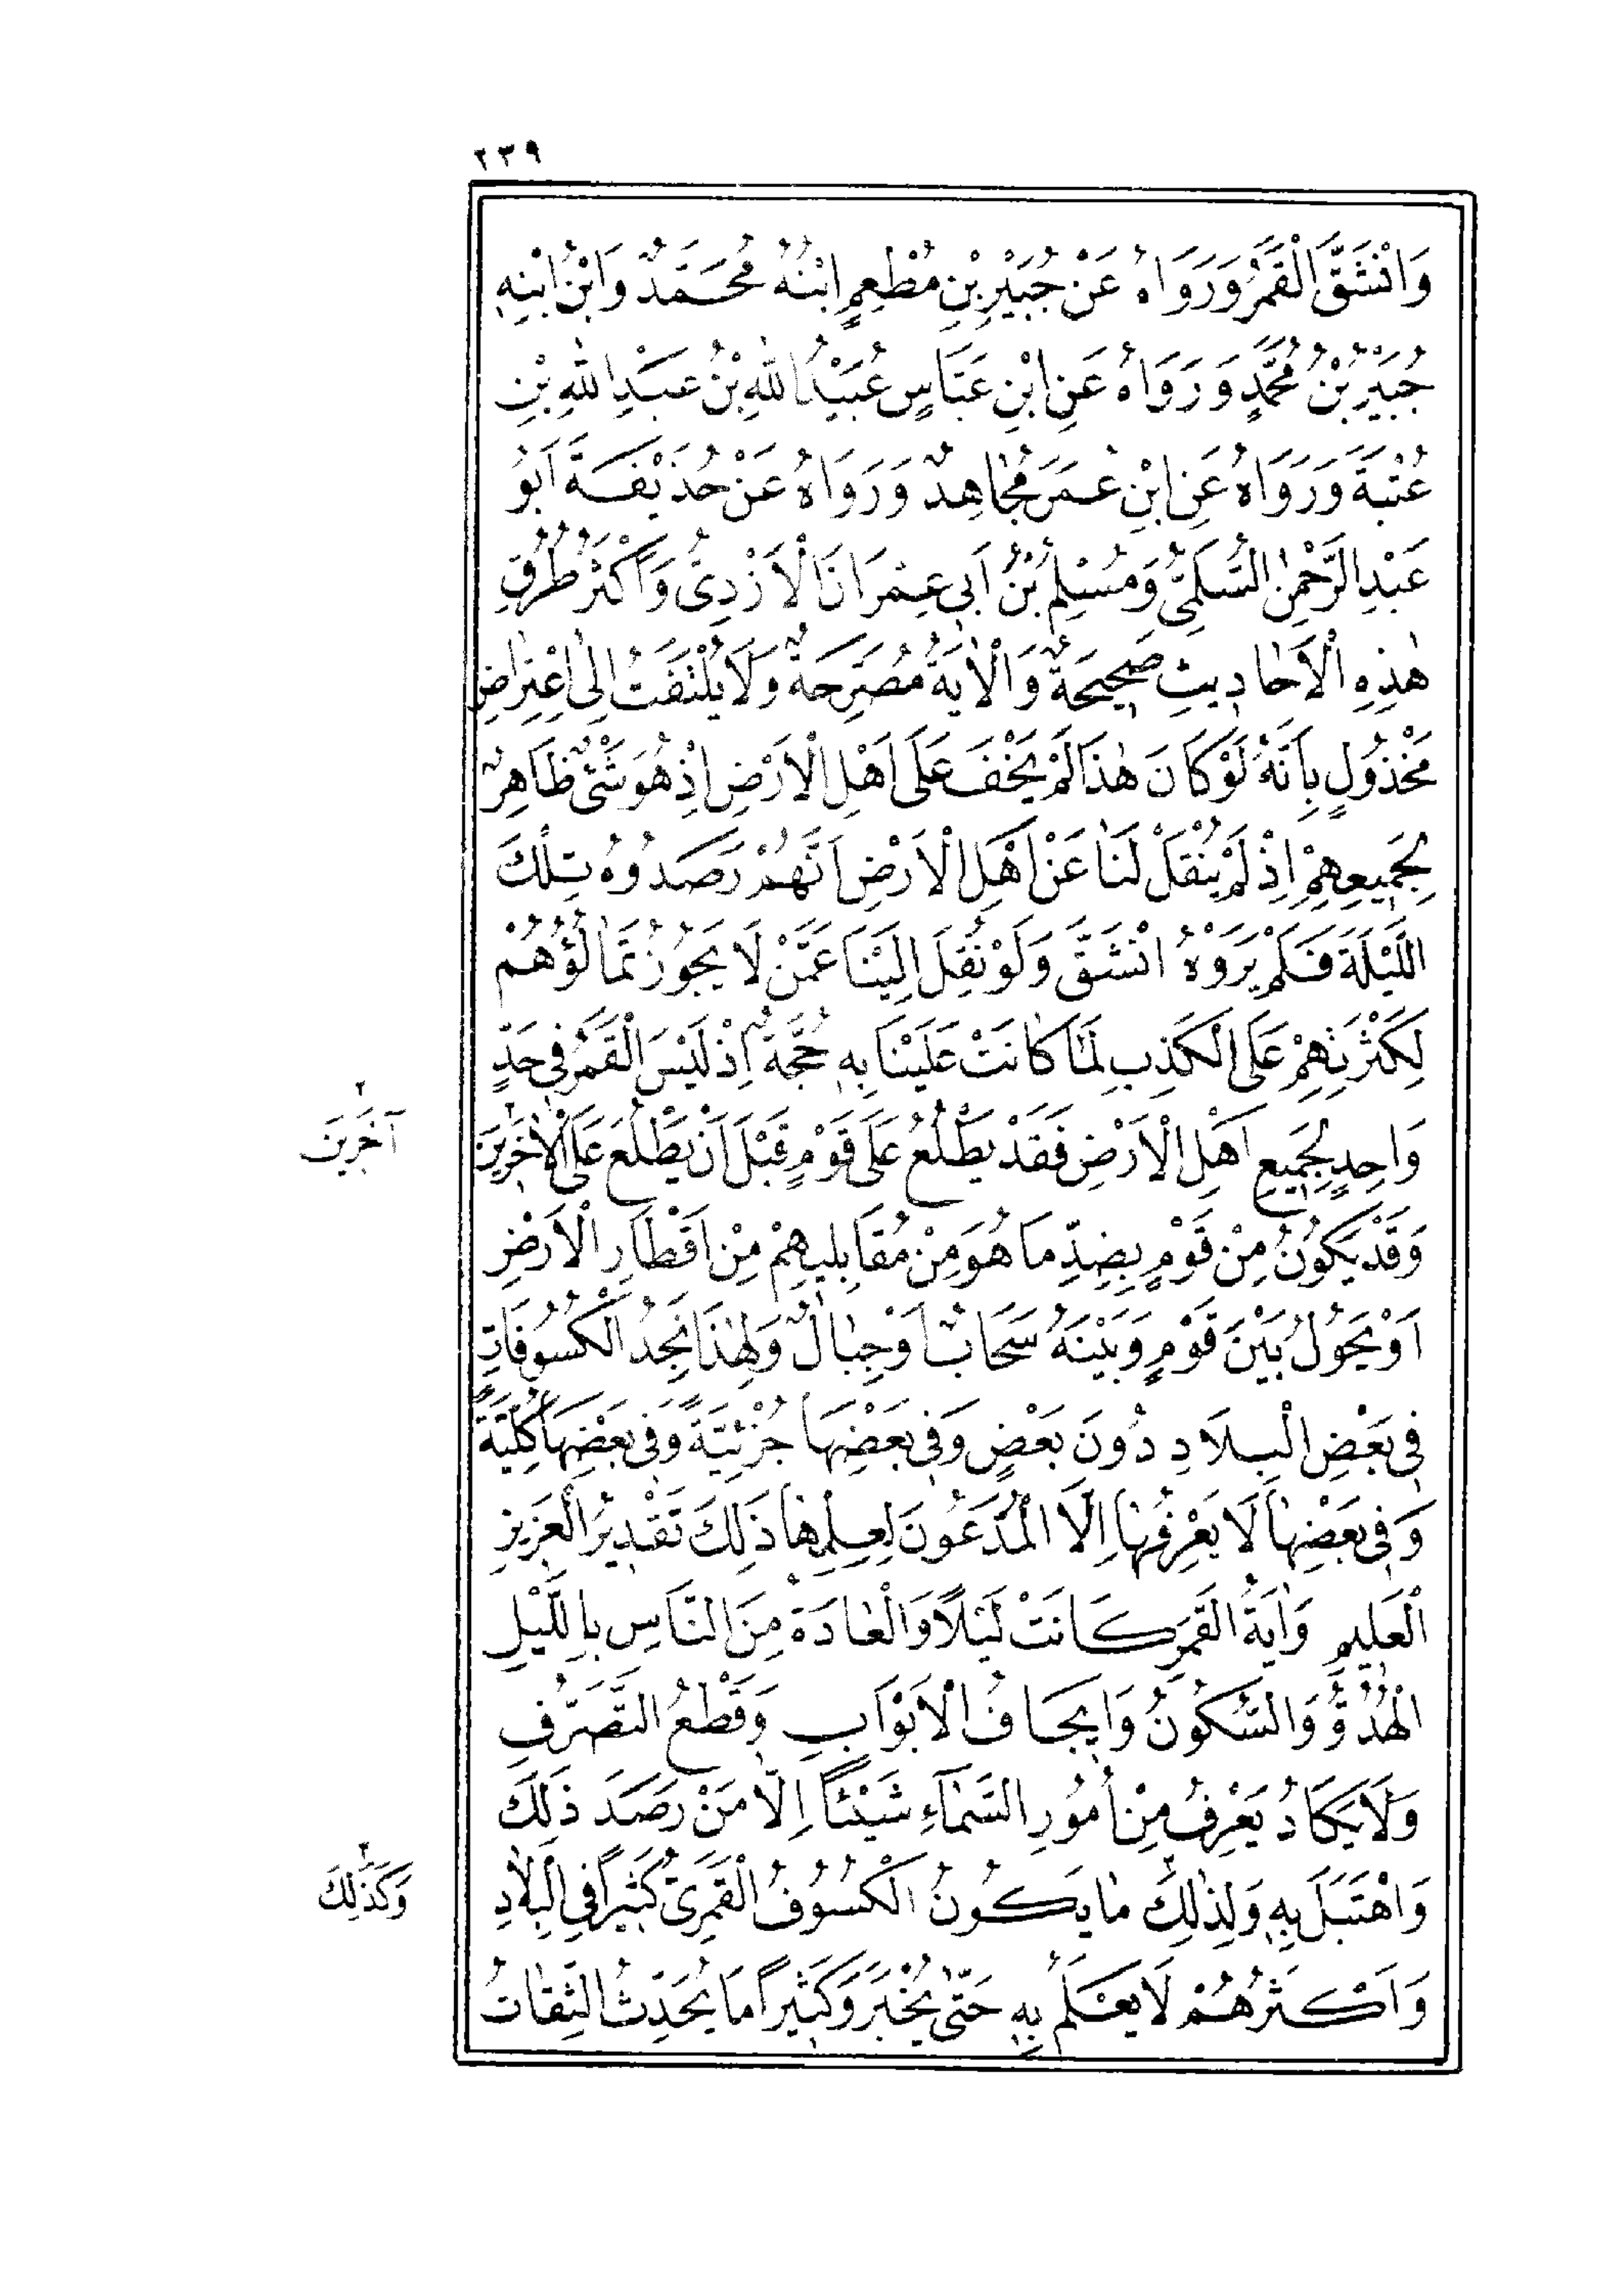 ٢٣٩
وَانْشَقَّ الْقَمَرُ وَرَوَاهُ عَنْ جُبَيْرِ بْنِ مُطْعِمٍ ابْنُهُ مُحَمَّدٌ وَابْنُ ابْنِهِ
جُبَيْرُ بْنُ مُحَمَّدٍ وَرَوَاهُ عَنِ ابْنِ عَبَّاسٍ عُبَيْدُ اللهِ بْنُ عَبْدِ اللهِ بْنِ
عُتْبَةَ وَرَوَاهُ عَنِ ابْنِ عُمَرَ مُجَاهِدٌ وَرَوَاهُ عَنْ حُذَيْفَةَ اَبُو
عَبْدِ الرَّحْمٰنِ السُّلَمِيُّ وَمُسْلِمُ بْنُ اَبِي عِمْرَانَ الْاَزْدِيُّ وَاَكْثَرُ طُرُقِ
هٰذِهِ الْاَحَادِيثِ صَحِيحَةٌ وَالْاٰيَةُ مُصَرِّحَةٌ وَلَا يُلْتَفَتُ اِلٰى اعْتِرَاضِ
مَخْذُولٍ بِاَنَّهُ لَوْ كَانَ هٰذَا لَمْ يَخْفَ عَلَى اَهْلِ الْاَرْضِ اِذْ هُوَ شَيْءٌ ظَاهِرٌ
لِجَمِيعِهِمْ اِذْ لَمْ يُنْقَلْ لَنَا عَنْ اَهْلِ الْاَرْضِ اَنَّهُمْ رَصَدُوهُ تِلْكَ
اللَّيْلَةَ فَلَمْ يَرَوْهُ انْشَقَّ وَلَوْ نُقِلَ اِلَيْنَا عَمَّنْ لَا يَجُوزُ تَمَالُؤُهُمْ
لِكَثْرَتِهِمْ عَلَى الْكَذِبِ لَمَا كَانَتْ عَلَيْنَا بِهِ حُجَّةٌ اِذْ لَيْسَ الْقَمَرُ فِي حَدٍّ
وَاحِدٍ لِجَمِيعِ اَهْلِ الْاَرْضِ فَقَدْ يَطْلُعُ عَلَى قَوْمٍ قَبْلَ اَنْ يَطْلُعَ عَلَى الْاٰخَرِينَ
٢
آخَرِينَ
وَقَدْ يَكُونُ مِنْ قَوْمٍ بِضِدِّ مَا هُوَ مِنْ مُقَابِلِيهِمْ مِنْ اَقْطَارِ الْاَرْضِ
اَوْ يَحُولُ بَيْنَ قَوْمٍ وَبَيْنَهُ سَحَابٌ اَوْ جِبَالٌ وَلِهٰذَا نَجِدُ الْكُسُوفَاتِ
فِي بَعْضِ الْبِلَادِ دُونَ بَعْضٍ وَفِي بَعْضِهَا جُزْئِيَّةً وَفِي بَعْضِهَا كُلِّيَّةً
وَفِي بَعْضِهَا لَا يَعْرِفُهَا اِلَّا الْمُدَّعُونَ لِعِلْمِهَا ذَلِكَ تَقْدِيرُ الْعَزِيزِ
الْعَلِيمِ وَاٰيَةُ الْقَمَرِ كَانَتْ لَيْلًا وَالْعَادَةُ مِنَ النَّاسِ بِاللَّيْلِ
الْهُدُوُّ وَالسُّكُونُ وَاِيجَافُ الْاَبْوَابِ وَقَطْعُ التَّصَرُّفِ
وَلَا يَكَادُ يَعْرِفُ مِنْ اُمُورِ السَّمَاءِ شَيْئًا اِلَّا مَنْ رَصَدَ ذَلِكَ
وَاهْتَبَلَ بِهِ وَلِذٰلِكَ مَا يَكُونُ الْكُسُوفُ الْقَمَرِيُّ كَثِيرًا فِي الْبِلَادِ
٢
وَكَذَلِكَ
وَاَكْثَرُهُمْ لَا يَعْلَمُ بِهِ حَتّٰى يُخْبَرَ وَكَثِيرًا مَا يُحَدِّثُ الثِّقَاتُ